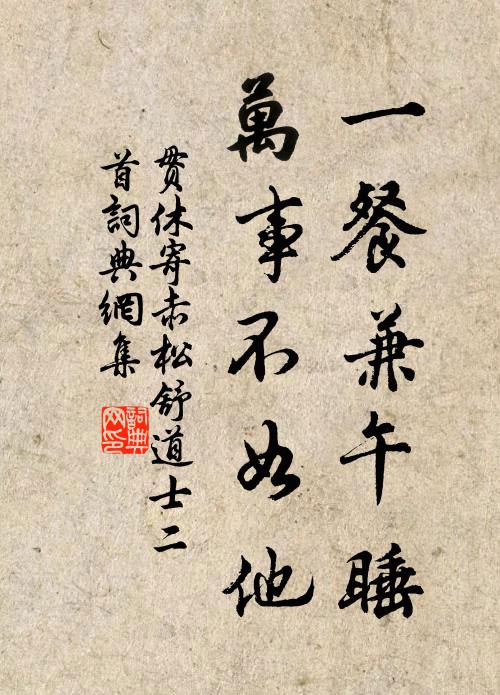 一餐兼午睡
萬事不如他
貫休寄赤松舒道士二
首詞典網集
詞典
网印